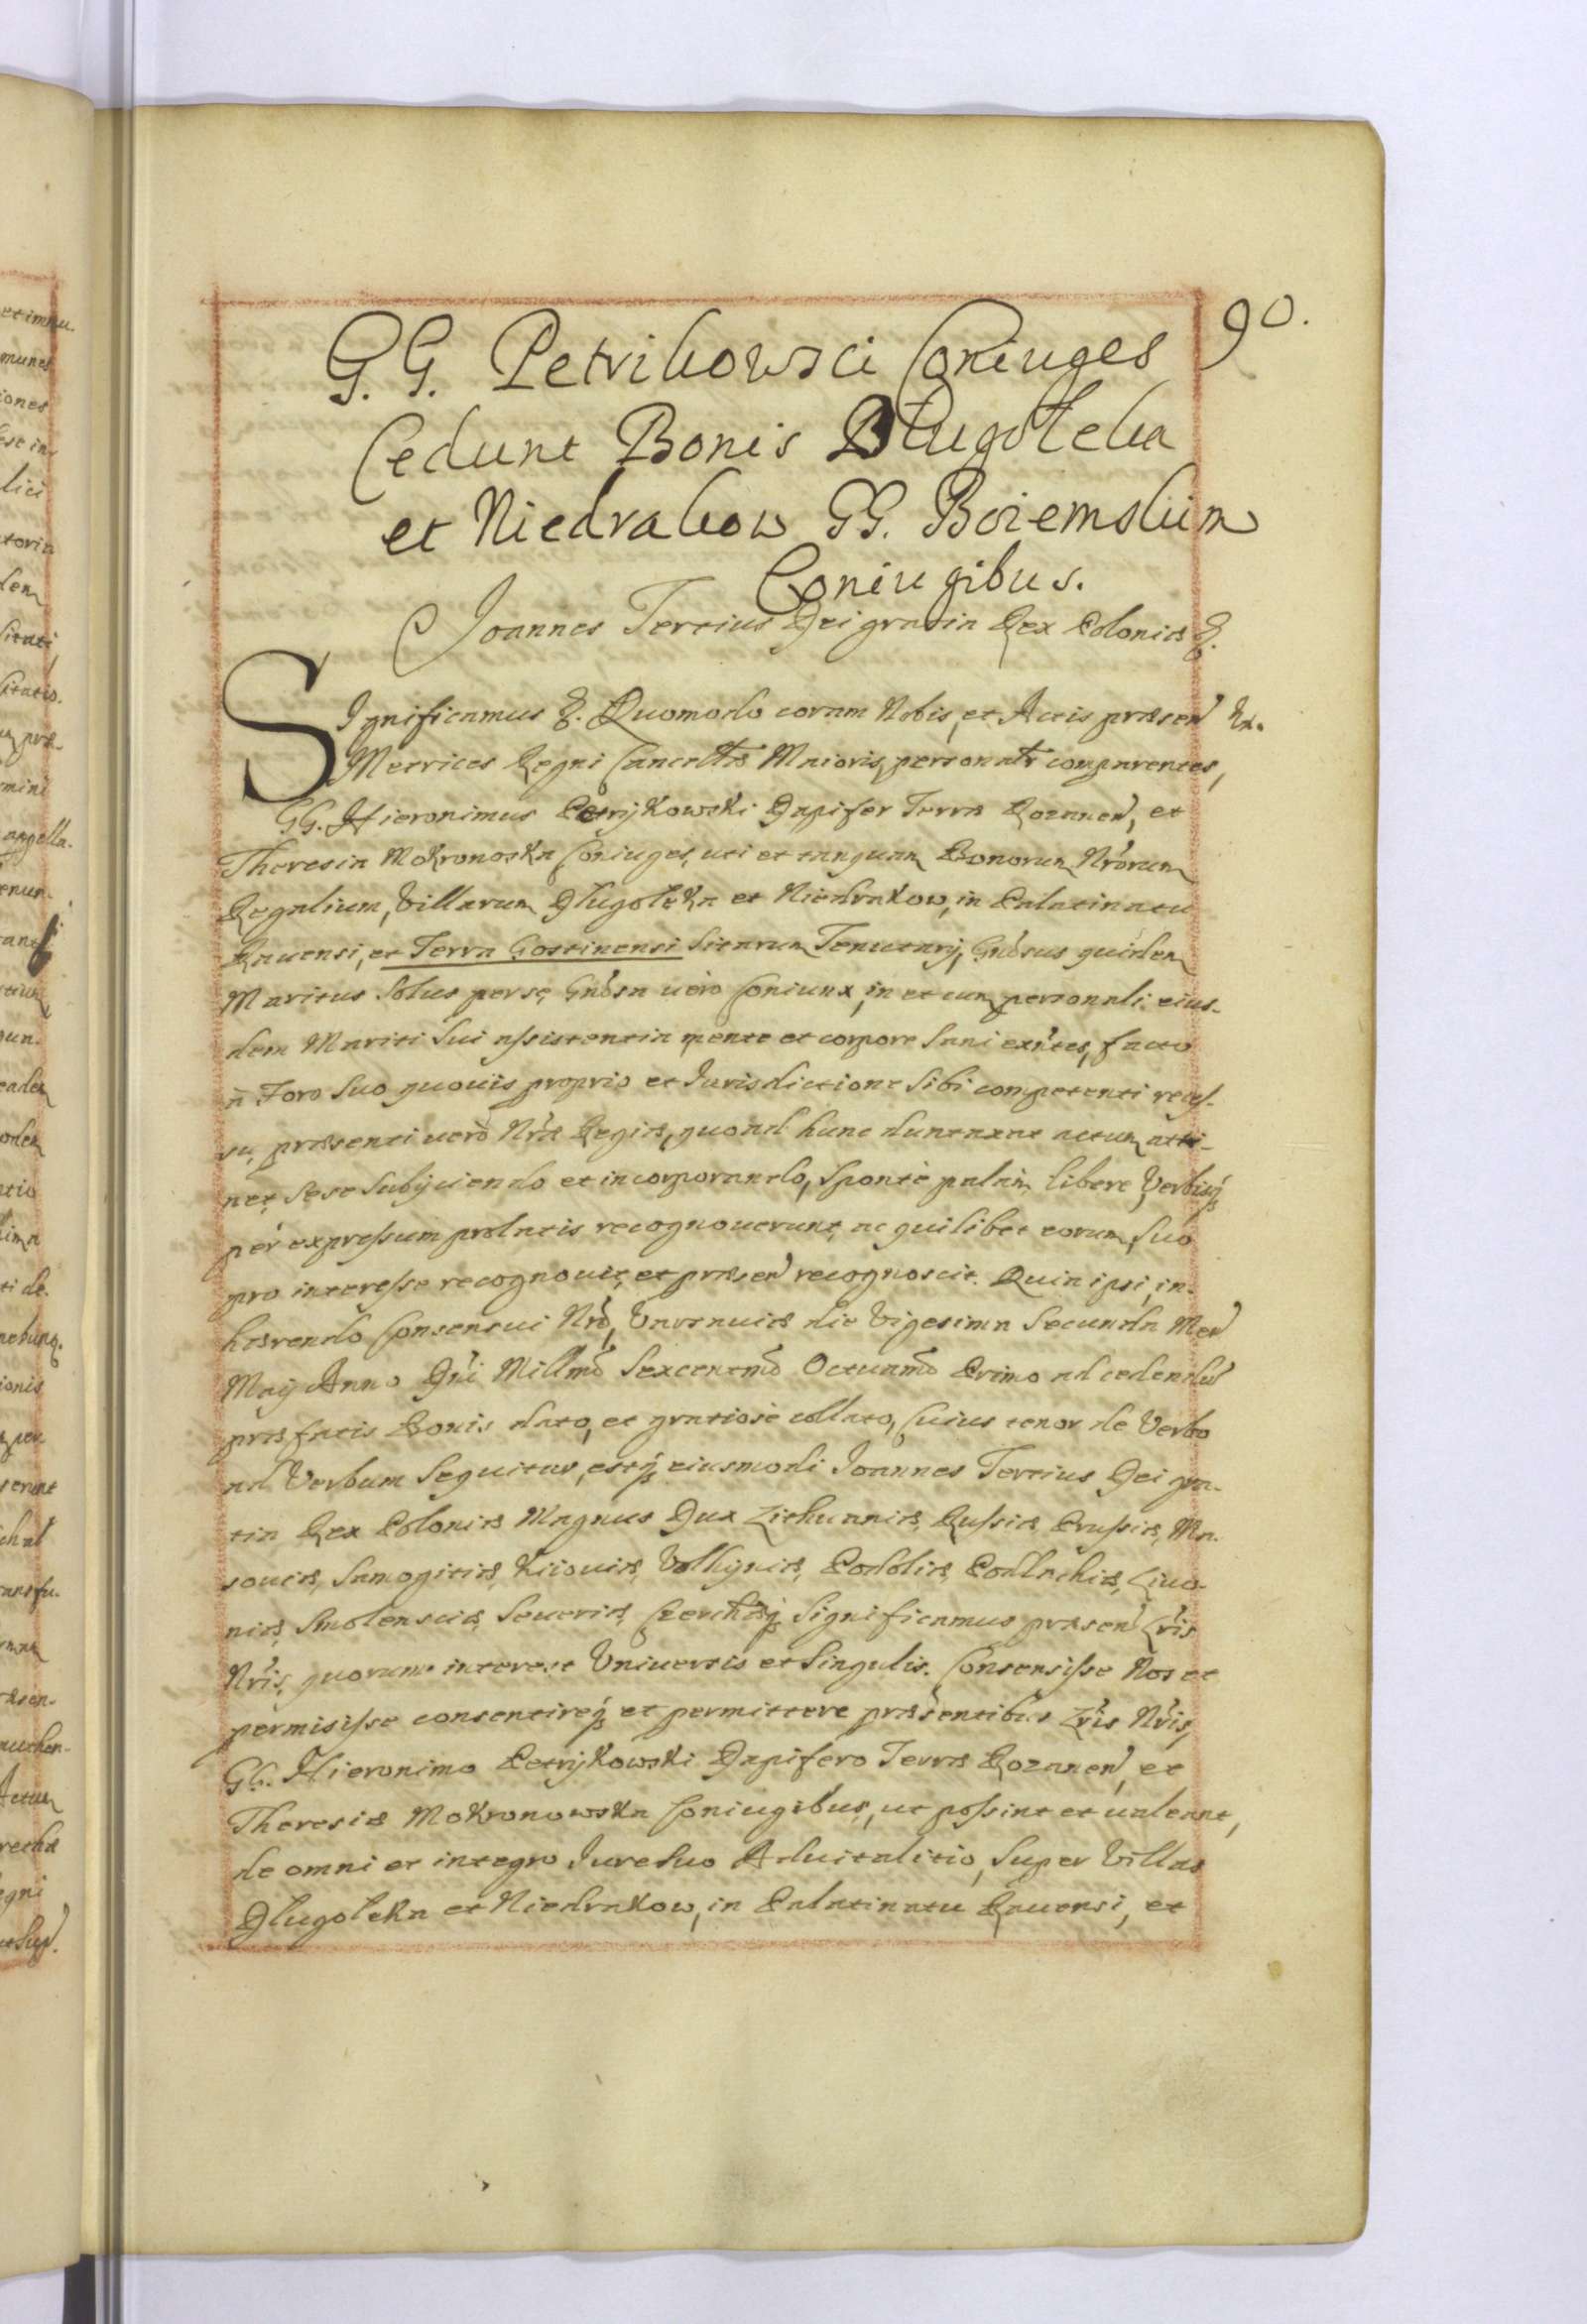 90.
G.G. Petrikowsci Coniuges
Cedunt Bonis Długołeka
et Niedrakow GG. Boiemskim
Coniugibus.
Joannes Tertius Dei gratia Rex Poloniæ &.
Significamus &. Quomodo coram Nobis, et Actis præsen̄
Metrices Regni Cancellr̃æ Maioris, personalr̃ comparentes,
GG. Hieronimus Petrykowski Dapifer Terræ Rozanen̄, et
Theresia Mokronoska Coniuges, uti et tanquam Bonorum Nr̃orum
Regalium, Villarum Długołeka et Niedrakow, in Palatinatu
Rauensi, et Terra Gostinensi sitarum Tenutarij, Gñosus quidem
Maritus solus per se, Gñosa uero Coniunx, in et cum personali eius-
dem Mariti sui assistentia mente et corpore sani exñtes, facto
à Foro suo quouis proprio et Iurisdictione sibi competenti reces-
su, præsenti uerò Nr̃æ Regiæ, quoad hunc duntaxat actum atti-
net, sese subijciendo et incorporando, sponte palam libere Verbisq́
pér expressum prolatis recognouerunt, ac quilibet eorum, suo
pro interesse recognouit, et præsen̄ recognoscit. Quia ipsi, in-
hærendo Consensui Nr̃o, Varsauiæ die Vigesima Secunda Men̄
Maij Anno Dñi Millm̃o Sexcentm̃o Octuam̃o Primo ad cedendũ
præfatis Bonis dato, et gratiosè collato, Cuius tenor de Verbo
ad Verbum Sequitur, estq́ eiusmodi Ioannes Tertius Dei gra-
tia Rex Poloniæ Magnus Dux Lithuaniæ, Russiæ Prussiæ, Ma-
souiæ, Samogitiæ, Kiiouiæ, Volhyniæ, Podoliæ, Podlachiæ, Liuo-
niæ, Smolensciæ, Seueriæ, Czerniechq́ Significamus præsen̄ Lr̃is
Nr̃is, quorum interest Vniuersis et Singulis. Consensisse Nos et
permisisse consentireq́ et permittere præsentibus Lr̃is Nr̃is,
GG. Hieronimo Petrykowski Dapifero Terræ Rozanen̄, et
Theresiæ Mokronowska Coniugibus, ut possint et ualeant,
de omni et integro Iure suo Aduitalitio, super Villas
Długołeka et Niedrakow, in Palatinatu Rauensi, et